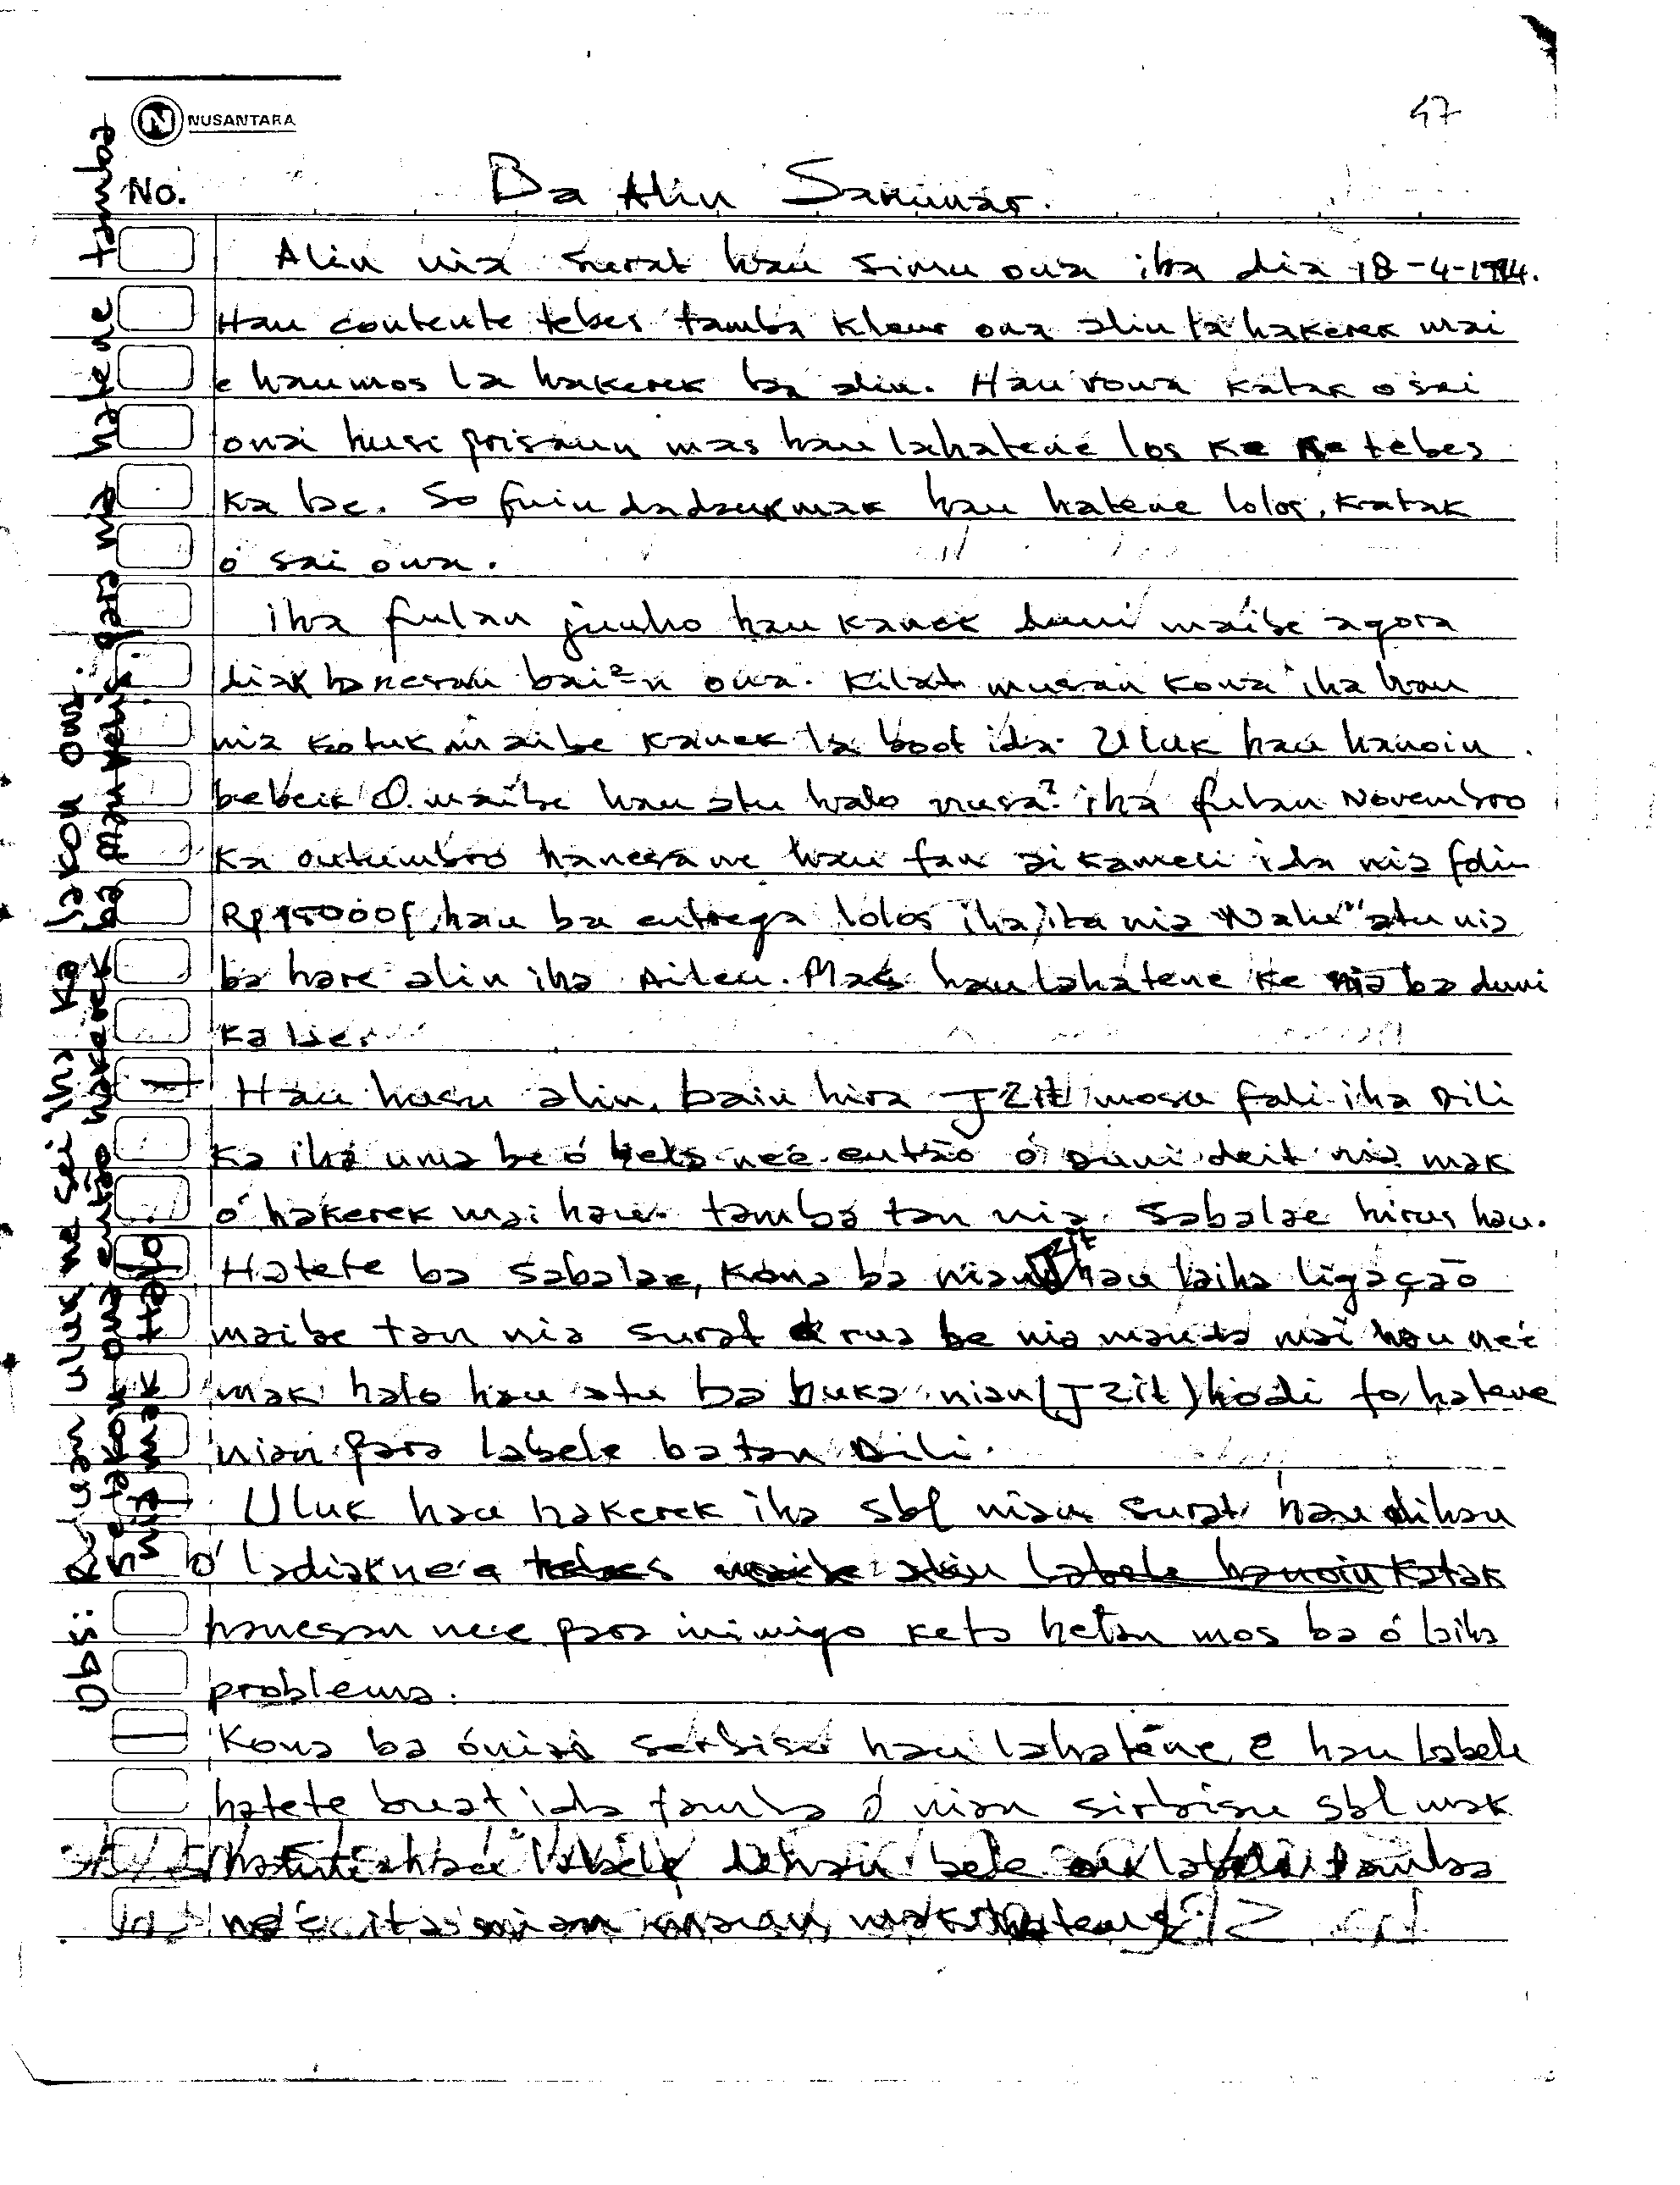 NUSANTARA
47
No.
Ba Alin Sanunar.
Alin nia surat hau simu ona iha dia 18-4-1994.
Hau contente tebes tamba kleur ona alin la hakerek mai
e hau mos la hakerek ba alin. Hau rona katak o sai
onai husi prisaun mas hau lahatene los ke ne tebes
ka be. So fuin dadauk mak hau hatene lolos, katak
ó sai ona.
iha fulan junho hau kanek duni maibe agora
diak hanesan bai²n ona. Kilat musan kona iha hau
nia kotuk maibe kanek la boot ida. Uluk hau hanoin
bebeik O. maibe hau atu halo nusa? iha fulan Novembro
ka outumbro hanesan ne hau fan aikameli ida nia folin
Rp hau ba entrega lolos iha ita nia atu nia
ba hare alin iha Aileu. Mas hau lahatene ke nia ba duni
ka be.
Hau husu alin, bain hira J Zit mosu fali iha Dili
ka iha uma be ó nee então ó duni deit nia mak
ó hakerek mai hau. tamba tan nia Sabalae hirus hau.
Hatete ba Sabalae, kona ba nian J Zit hau laiha ligação
maibe tan nia surat rua be nia manda mai hau neé
mak halo hau atu ba buka nian (J Zit) hodi fo hatene
nian para labele ba tan Dili.
Uluk hau hakerek iha sbl nian surat hau dihan
ó ladiak ne'e labele hanoin katak
hanesan nee para inimigo keta hetan mos ba ó laiha
problema.
Kona ba ónian serbisu hau lahatene, e hau labele
hatete buat ida tamba ó nian sirbisu sbl mak
hau labele dehan bele tamba
ne'é ita nian
Obs: uluk ne sei iha ka lakon ona: para nia hatene tambe
hakerek ba